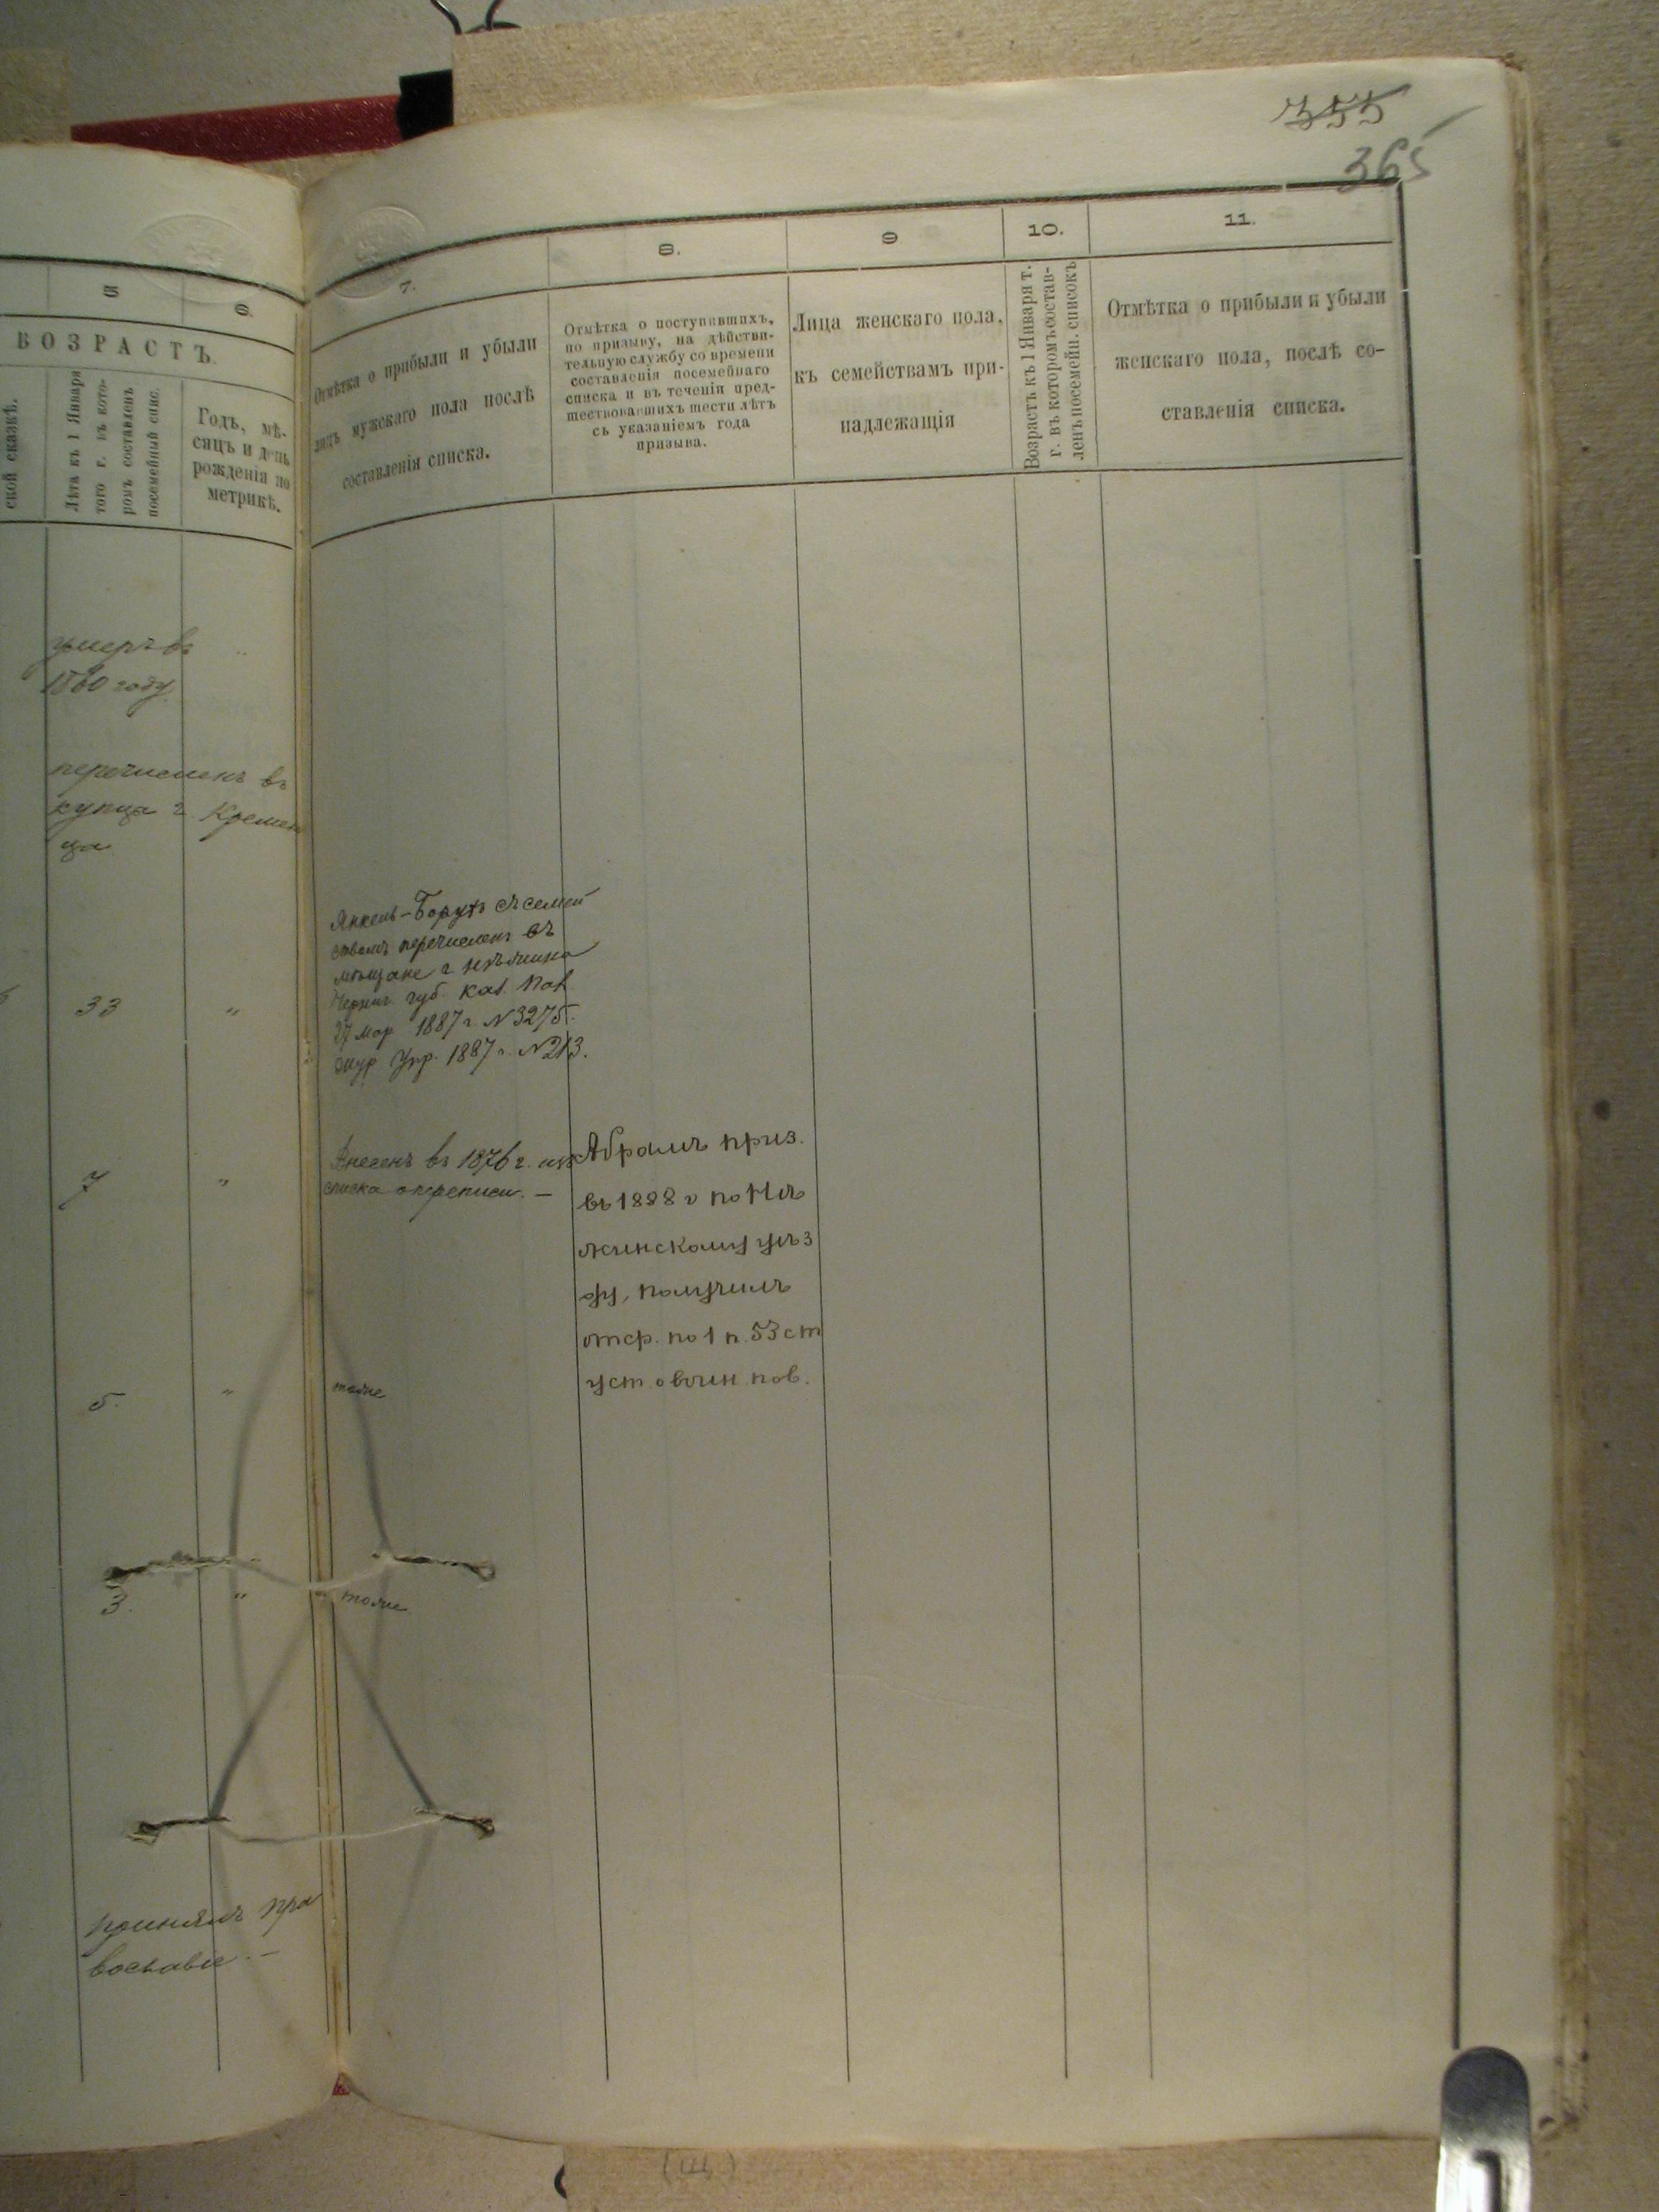 355
365
5
6.
7.
8.
9
10.
11.
ВОЗРАСТЪ.
ской сказкѣ.
Лѣта къ 1 Января
того г. въ кото-
ромъ составленъ
посемейный спис.
Годъ, мѣ-
сяцъ и день
рожденія по
метрикѣ.
Отмѣтка о прибыли и убыли
лицъ мужскаго пола послѣ
составленія списка.
Отмѣтка о поступившихъ,
по призыву, на дѣйстви-
тельную службу со времени
составленія посемейнаго
списка и въ теченіи пред-
шествовавшихъ шести лѣтъ
съ указаніемъ года
призыва.
Лица женскаго пола,
къ семействамъ при-
надлежащія
Возрастъ къ 1 Января т.
г. въ которомъ состав-
ленъ посемейн. списокъ
Отмѣтка о прибыли и убыли
женскаго пола, послѣ со-
ставленія списка.
умеръ въ
1860 году.
перечисленъ въ
купцы г. Кремен
ца
33 "
Янкель-Борухъ съ семей
ствомъ перечисленъ въ
мѣщане г. Нѣжина
Черниг. губ. Каз. Пал.
27 мар. 1887 г. N 3275.
жур. Упр. 1887 г. N 213.
7 "
Внесенъ въ 1876 г. изъ
списка о переписи. —
Абрамъ приз.
въ 1888 г по Нѣ
жинскому уѣз
ду, получилъ
отср. по 1 п. 53 ст
уст. о воин. пов.
5. " тоже
3. " тоже
принялъ пра
вославіе. —